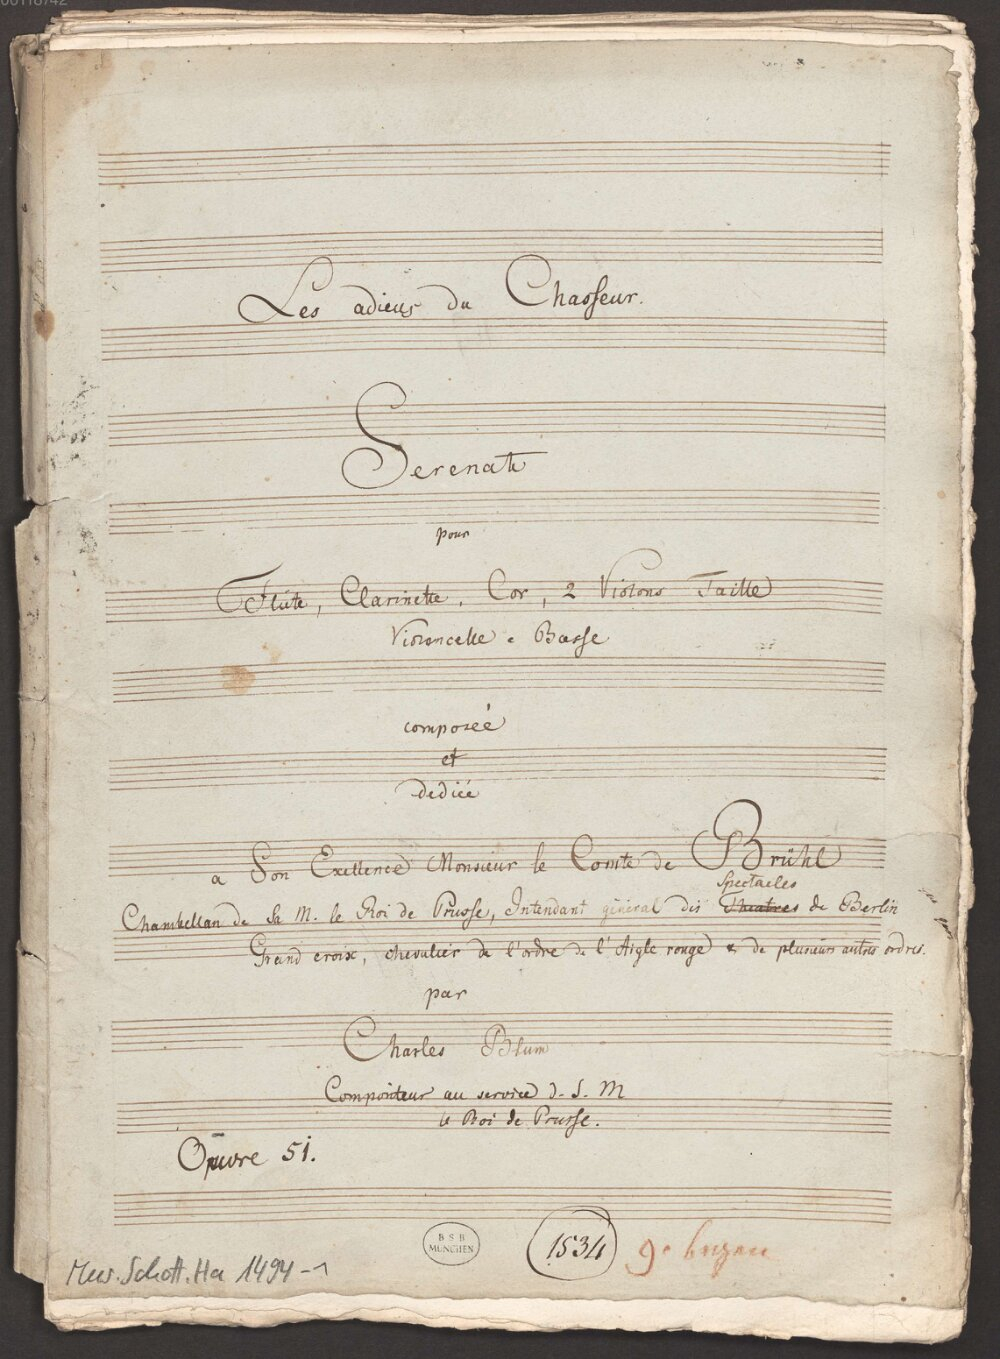 00118742
Les adieus du Chasseur.
Serenate
pour
Flûte, Clarinette, Cor, 2 Violons Taille
Violoncelle e Basse
composée
et
dediée
a Son Exellence Monsieur le Comte de Brühl
Spectacles
Chambellan de Sa M. le Roi de Prusse, Intendant général des Theatres de Berlin
Grand croix, chevalier de l'ordre de l'Aigle rouge & de plusieurs autres ordres.
par
Charles Blum
Compositeur au service d. S. M
le Roi de Prusse.
Oeuvre 51.
BSB
MÜNCHEN
1534
Mus.Schott.Ha 1494-1